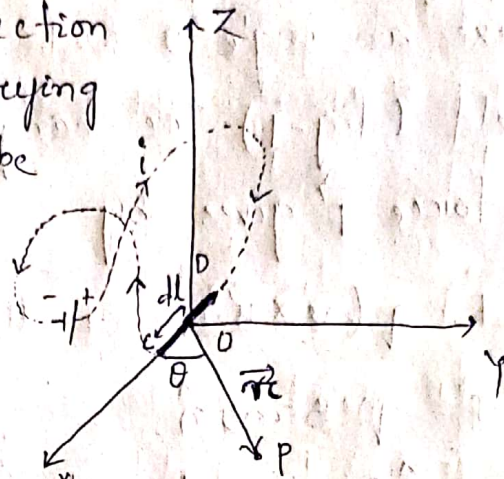 ction
Z
rying
be
i
D
dl
- +
c
O
Y
θ
r⃗
P
x